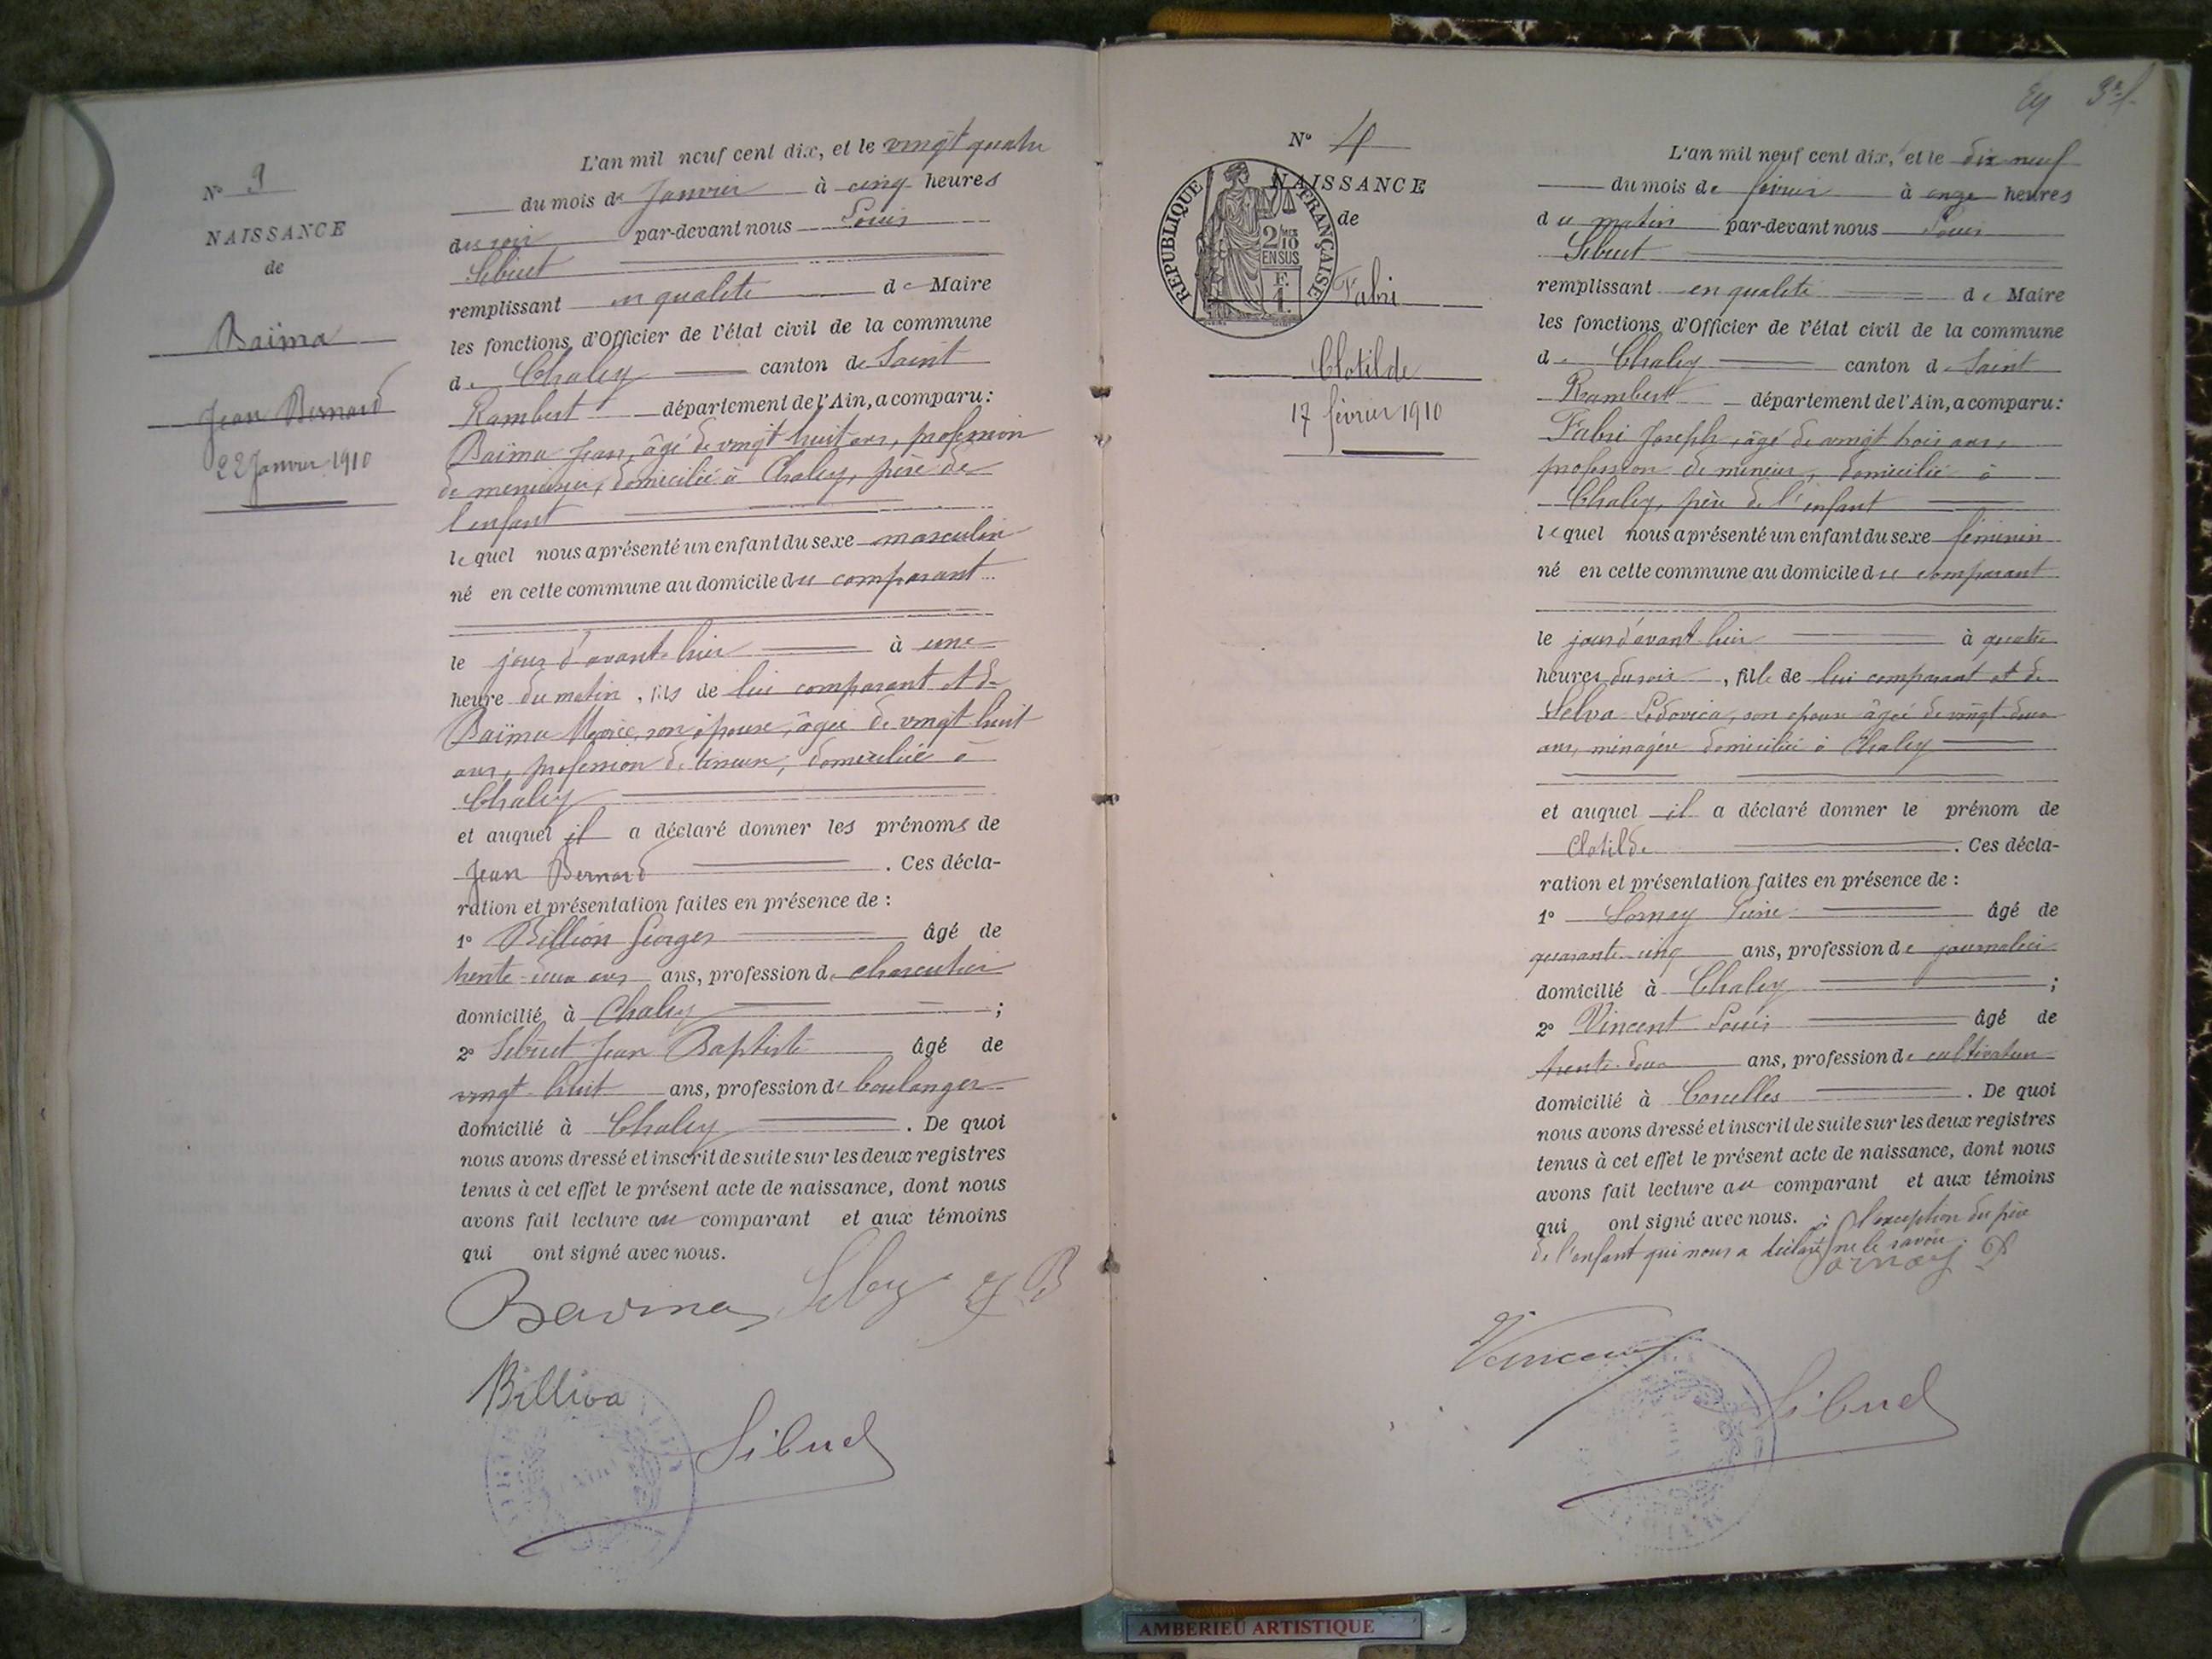 N° 3
NAISSANCE
de
Baïma
Jean Bernard
22 Janvier 1910
L'an mil neuf cent dix, et le vingt quatre
du mois de Janvier à cinq heures
du soir par-devant nous Louis
Sibuet
remplissant en qualité de Maire
les fonctions d'Officier de l'état civil de la commune
de Chaley canton de Saint
Rambert département de l'Ain, a comparu :
Baïma Jean, âgé de vingt huit ans, profession
de menuisier, domicilié à Chaley, père de
l'enfant
lequel nous a présenté un enfant du sexe masculin
né en cette commune au domicile du comparant
le jour d'avant-hier à une
heure du matin, fils de lui comparant et de
Baïma Marie, son épouse, âgée de vingt huit
ans, profession de domiciliée à
Chaley
et auquel il a déclaré donner les prénoms de
Jean Bernard. Ces décla-
ration et présentation faites en présence de :
1° Billion Georges âgé de
trente deux ans ans, profession de charcutier
domicilié à Chaley ;
2° Sibuet Jean Baptiste âgé de
vingt huit ans, profession de boulanger
domicilié à Chaley. De quoi
nous avons dressé et inscrit de suite sur les deux registres
tenus à cet effet le présent acte de naissance, dont nous
avons fait lecture au comparant et aux témoins
qui ont signé avec nous.
Baïma
Billion
Sibuet
3e f.
N° 4
NAISSANCE
de
RÉPUBLIQUE FRANÇAISE
2/10
EN SUS
F.
1.
Fabri
Clotilde
17 février 1910
L'an mil neuf cent dix, et le dix neuf
du mois de février à onze heures
du matin par-devant nous Louis
Sibuet
remplissant en qualité de Maire
les fonctions d'Officier de l'état civil de la commune
de Chaley canton de Saint
Rambert département de l'Ain, a comparu :
Fabri Joseph, âgé de vingt trois ans,
profession de mineur, domicilié à
Chaley, père de l'enfant
lequel nous a présenté un enfant du sexe féminin
né en cette commune au domicile du comparant
le jour d'avant hier à quatre
heures du soir, fille de lui comparant et de
Selva Lodovica, son épouse âgée de vingt deux
ans, ménagère domiciliée à Chaley
et auquel il a déclaré donner le prénom de
Clotilde. Ces décla-
ration et présentation faites en présence de :
1° Sornay âgé de
quarante cinq ans, profession de journalier
domicilié à Chaley ;
2° Vincent Louis âgé de
trente deux ans, profession de cultivateur
domicilié à Corcelles. De quoi
nous avons dressé et inscrit de suite sur les deux registres
tenus à cet effet le présent acte de naissance, dont nous
avons fait lecture au comparant et aux témoins
qui ont signé avec nous. à l'exception du père
de l'enfant qui nous a déclaré ne le savoir.
Sornay P
Vincent
Sibuet
AMBERIEU ARTISTIQUE